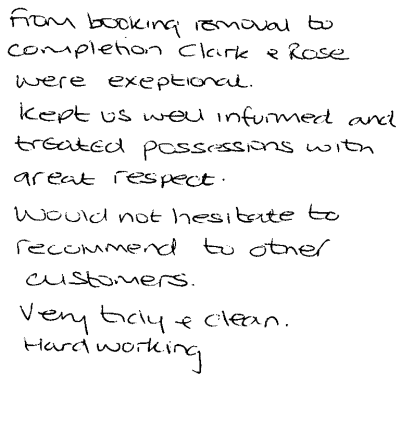 From booking removal to
completion Clark & Rose
were exeptional.
Kept us well informed and
treated possessions with
great respect.
Would not hesitate to
recommend to other
customers.
Very tidy & clean.
Hard working